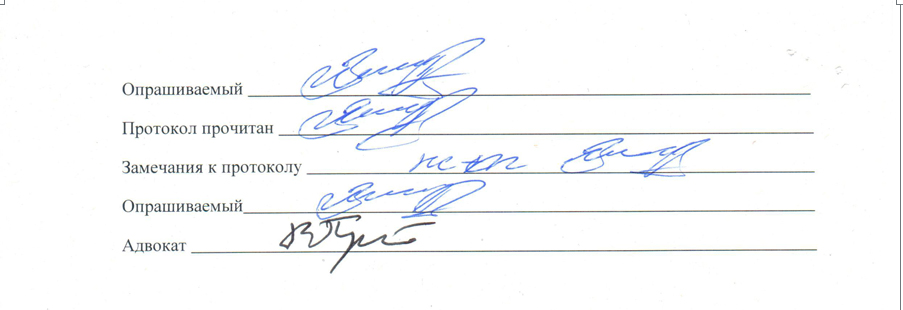 Опрашиваемый
Протокол прочитан
Замечания к протоколу
Опрашиваемый
Адвокат